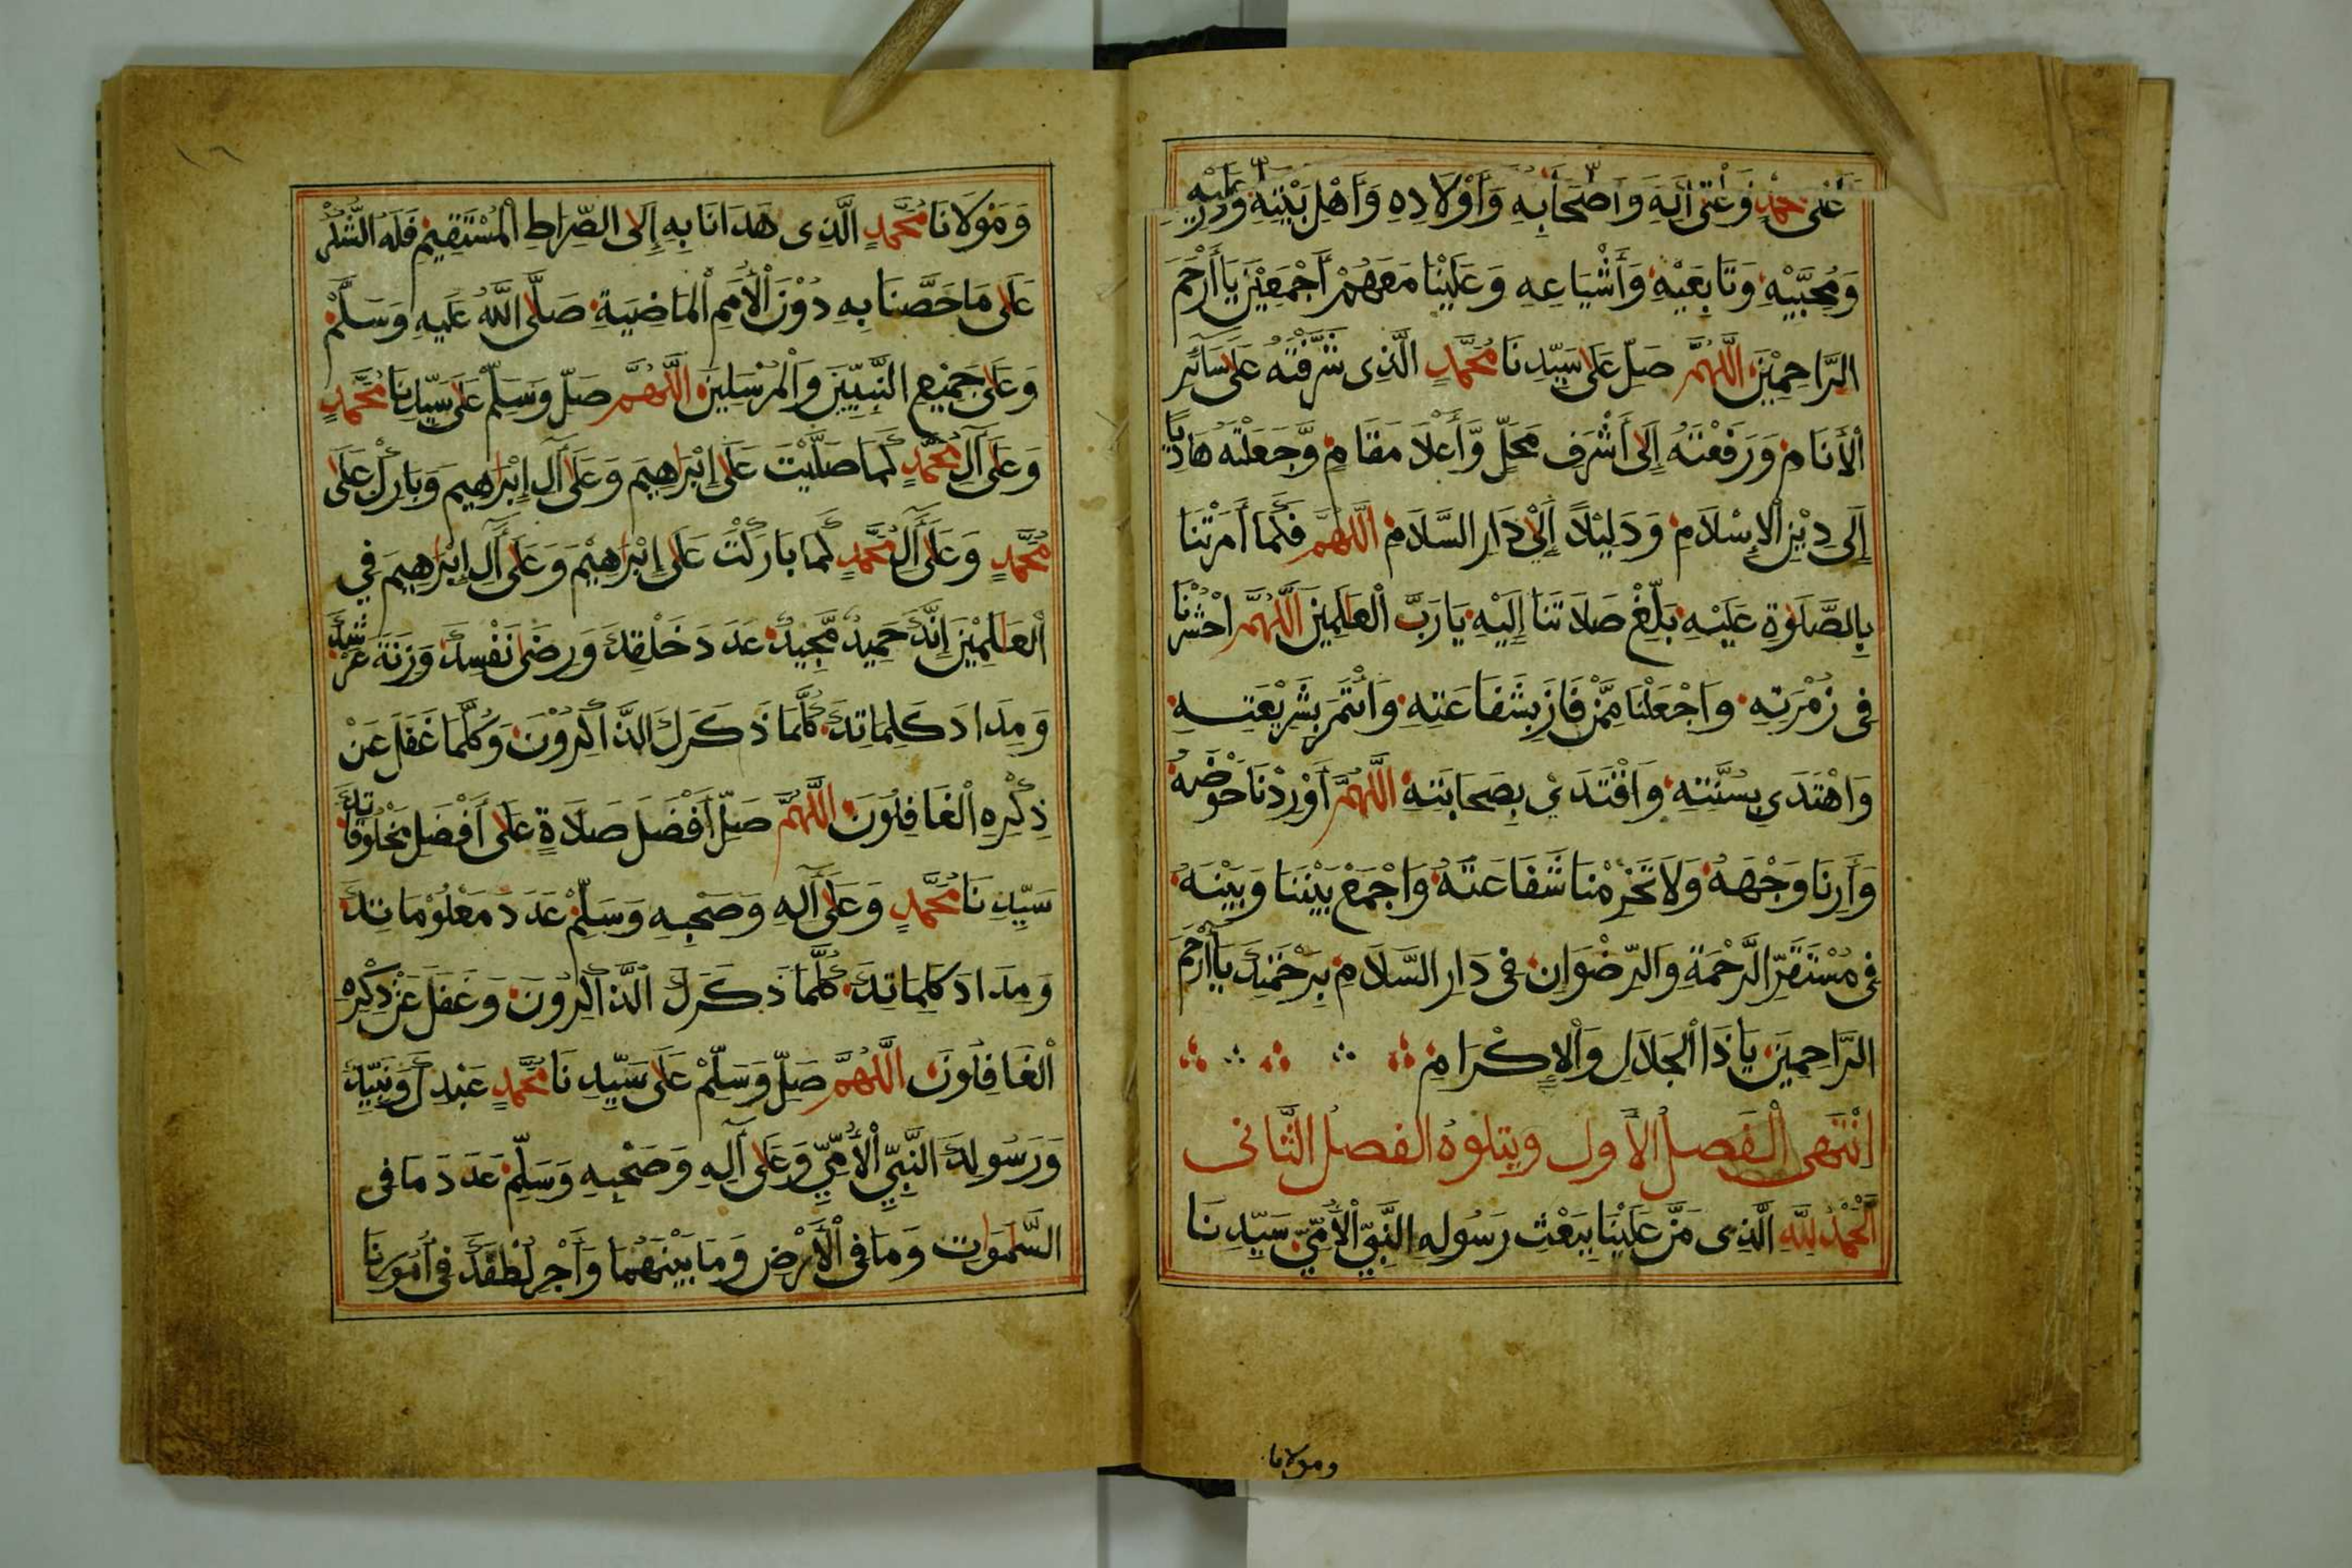 عَلَى مُحَمَّدٍ وَعَلَى آلِهِ وَأَصْحَابِهِ وَأَوْلَادِهِ وَأَهْلِ بَيْتِهِ وَذُرِّيَّتِهِ
وَمُحِبِّيْهِ وَتَابِعَيْهِ وَأَشْيَاعِهِ وَعَلَيْنَا مَعَهُمْ أَجْمَعِيْنَ يَا أَرْحَمَ
الرَّاحِمِيْنَ اللَّهُمَّ صَلِّ عَلَى سَيِّدِنَا مُحَمَّدٍ الَّذِى شَرَّفْتَهُ عَلَى سَآئِرِ
الْأَنَامِ وَرَفَعْتَهُ إِلَى أَشْرَفِ مَحَلٍّ وَّأَعْلَا مَقَامٍ وَّجَعَلْتَهُ هَادِيًا
إِلَى دِيْنِ الْإِسْلَامِ وَدَلِيْلًا إِلَىْ دَارِ السَّلَامِ اللَّهُمَّ فَكَمَا أَمَرْتَنَا
بِالصَّلَوٰةِ عَلَيْهِ بَلِّغْ صَلَاتَنَا إِلَيْهِ يَا رَبَّ الْعَالَمِيْنَ اللَّهُمَّ احْشُرْنَا
فِى زُمْرَتِهِ وَاجْعَلْنَا مِمَّنْ فَازَ بِشَفَاعَتِهِ وَائْتَمَرَ بِشَرِيْعَتِهِ
وَاهْتَدَى بِسُنَّتِهِ وَاقْتَدَىْ بِصَحَابَتِهِ اللَّهُمَّ أَوْرِدْنَا حَوْضَهُ
وَأَرِنَا وَجْهَهُ وَلَا تَحْرِمْنَا شَفَاعَتَهُ وَاجْمَعْ بَيْنَنَا وَبَيْنَهُ
فِى مُسْتَقَرِّ الرَّحْمَةِ وَالرِّضْوَانِ فِى دَارِ السَّلَامِ بِرَحْمَتِكَ يَا أَرْحَمَ
الرَّاحِمِيْنَ يَا ذَا الْجَلَالِ وَالْإِكْرَامِ
اِنْتَهَى الْفَصلُ الأَول ويتلوهُ الفصلُ الثَّانى
اَلْحَمْدُ لِلَّهِ الَّذِى مَنَّ عَلَيْنَا بِبَعْثِ رَسُولِهِ النَّبِيِّ الْأُمِّيِّ سَيِّدِنَا
ومولانا
١٦
وَمَوْلَانَا مُحَمَّدٍ الَّذِى هَدَانَا بِهِ إِلَى الصِّرَاطِ الْمُسْتَقِيْمِ فَلَهُ الشُّكْرُ
عَلَى مَا خَصَّنَا بِهِ دُوْنَ الْأُمَمِ الْمَاضِيَةِ صَلَّى اللَّهُ عَلَيهِ وَسَلَّمْ
وَعَلَى جَمِيْعِ النَّبِيِّيْنَ وَالْمُرْسَلِيْنَ اللَّهُمَّ صَلِّ وَسَلِّمْ عَلَى سَيِّدِنَا مُحَمَّدٍ
وَعَلَى آلِ مُحَمَّدٍ كَمَا صَلَّيْتَ عَلَى إِبْرَاهِيمَ وَعَلَى آلِ إِبْرَاهِيمَ وَبَارِكْ عَلَى
مُحَمَّدٍ وَعَلَى آلِ مُحَمَّدٍ كَمَا بَارَكْتَ عَلَى إِبْرَاهِيْمَ وَعَلَى آلِ إِبْرَاهِيمَ فِي
الْعَالَمِيْنَ إِنَّكَ حَمِيدٌ مَّجِيدٌ عَدَدَ خَلْقِكَ وَرِضَى نَفْسِكَ وَزِنَةَ عَرْشِكَ
وَمِدَادَ كَلِمَاتِكَ كُلَّمَا ذَكَرَكَ الذَّاكِرُوْنَ وَكُلَّمَا غَفَلَ عَنْ
ذِكْرِهِ الْغَافِلُوْنَ اللَّهُمَّ صَلِّ أَفْضَلَ صَلَاةٍ عَلَى أَفْضَلِ مَخْلُوْقَاتِكَ
سَيِّدِنَا مُحَمَّدٍ وَعَلَى آلِهِ وَصَحْبِهِ وَسَلِّمْ عَدَدَ مَعْلُوْمَاتِكَ
وَمِدَادَ كَلِمَاتِكَ كُلَّمَا ذَكَرَكَ الذَّاكِرُوْنَ وَغَفَلَ عَنْ ذِكْرِهِ
الْغَافِلُوْنَ اللَّهُمَّ صَلِّ وَسَلِّمْ عَلَى سَيِّدِنَا مُحَمَّدٍ عَبْدِكَ وَنَبِيِّكَ
وَرَسُولِكَ النَّبِيِّ الْأُمِّيِّ وَعَلَى آلِهِ وَصَحْبِهِ وَسَلِّمْ عَدَدَ مَا فِى
السَّمٰوَاتِ وَمَا فِى الْأَرْضِ وَمَا بَيْنَهُمَا وَأَجْرِ لُطْفَكَ فِى أُمُوْرِنَا